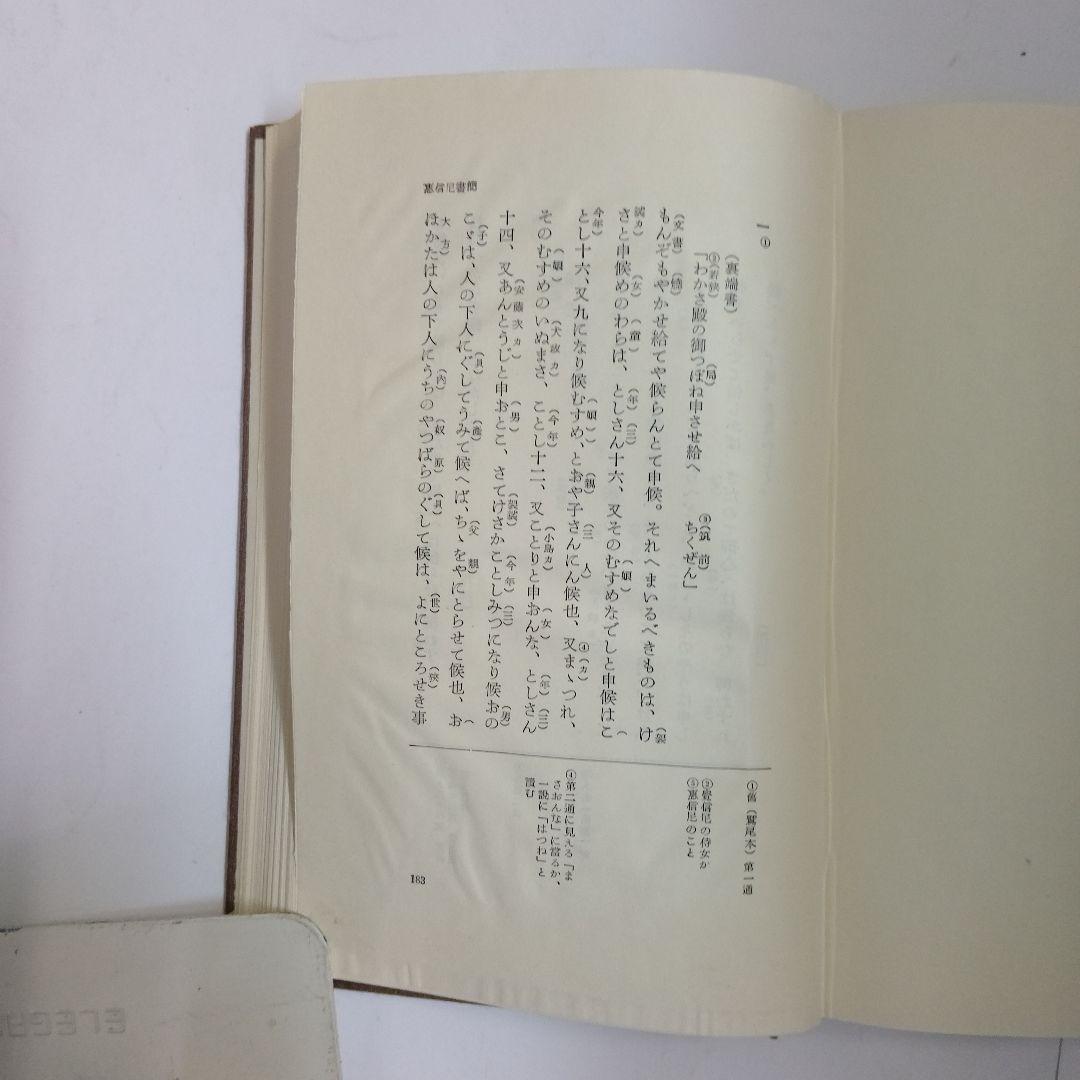 惠信尼書簡
一①
(裏端書)
「わかさ殿の御つぼね申させ給へ ちくぜん」
②(若狹) (局) ③(筑前)
もんぞもやかせ給てや候らんとて申候。それへまいるべきものは、け
(文書) (燒) (袈
さと申候めのわらは、としさん十六、又そのむすめなでしと申候はこ
裟カ) (女) (童) (年) (三) (娘) (
とし十六、又九になり候むすめ、とおや子さんにん候也、又まゝつれ、
今年) (娘) (親) (三人) ④(カ)
そのむすめのいぬまさ、ことし十二、又ことりと申おんな、としさん
(娘) (犬政カ) (今年) (小鳥カ) (女) (年) (三)
十四、又あんとうじと申おとこ、さてけさかことしみつになり候おの
(安藤次カ) (男) (袈裟) (今年) (三) (男)
こゞは、人の下人にぐしてうみて候へば、ちゝをやにとらせて候也、お
(子) (具) (產) (父親) (
ほかたは人の下人にうちのやつばらのぐして候は、よにところせき事
大方) (內) (奴原) (具) (世) (狹)
①舊(鷲尾本)第一通
②覺信尼の侍女か
③惠信尼のこと
④第二通に見える「ま
さおんな」に當るか、
一說に「はつね」と
讀む
183